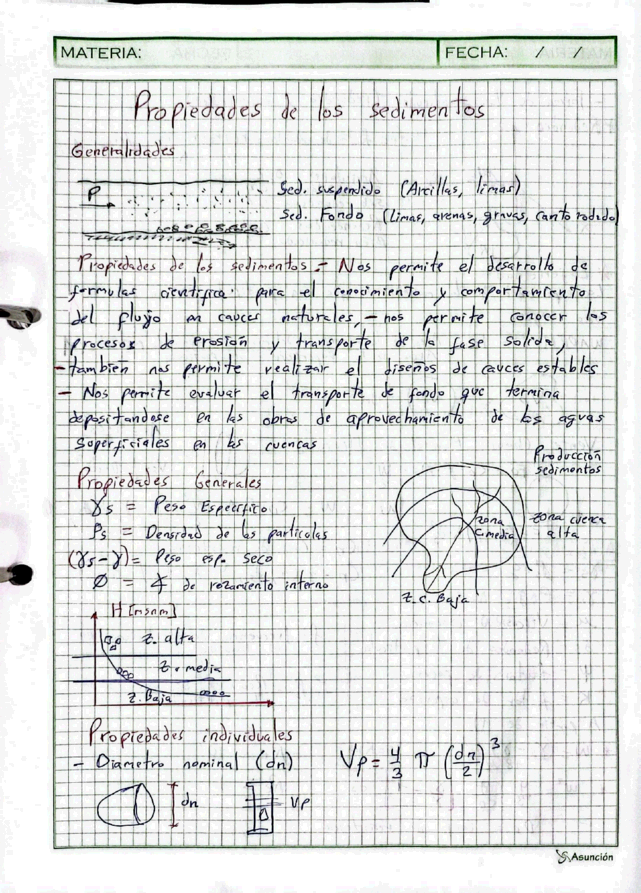 MATERIA:
FECHA: / /
Propiedades de los sedimentos
Generalidades
P
Sed. suspendido (Arcillas, limas)
Sed. Fondo (limas, arenas, gravas, canto rodado)
Propiedades de los sedimentos.- Nos permite el desarrollo de
formulas cientifica. para el conocimiento y comportamiento
del flujo en cauces naturales, - nos permite conocer los
procesos de erosión y transporte de la fase solida,
- también nos permite realizar el diseños de cauces estables
- Nos permite evaluar el transporte de fondo que termina
depositandose en las obras de aprovechamiento de las aguas
superficiales en las cuencas
Producción
sedimentos
zona
C.media
zona cuenca
alta
Z.C. Baja
Propiedades Generales
γs = Peso Especifico
ρs = Densidad de las particulas
(γs-γ)= Peso esp. seco
Ø = ∡ de rozamiento interno
H [msnm]
Z. alta
Z. media
Z. Baja
Propiedades individuales
- Diametro nominal (dn)
Vp = 4/3 π (dn/2)³
dn
Vp
Asunción